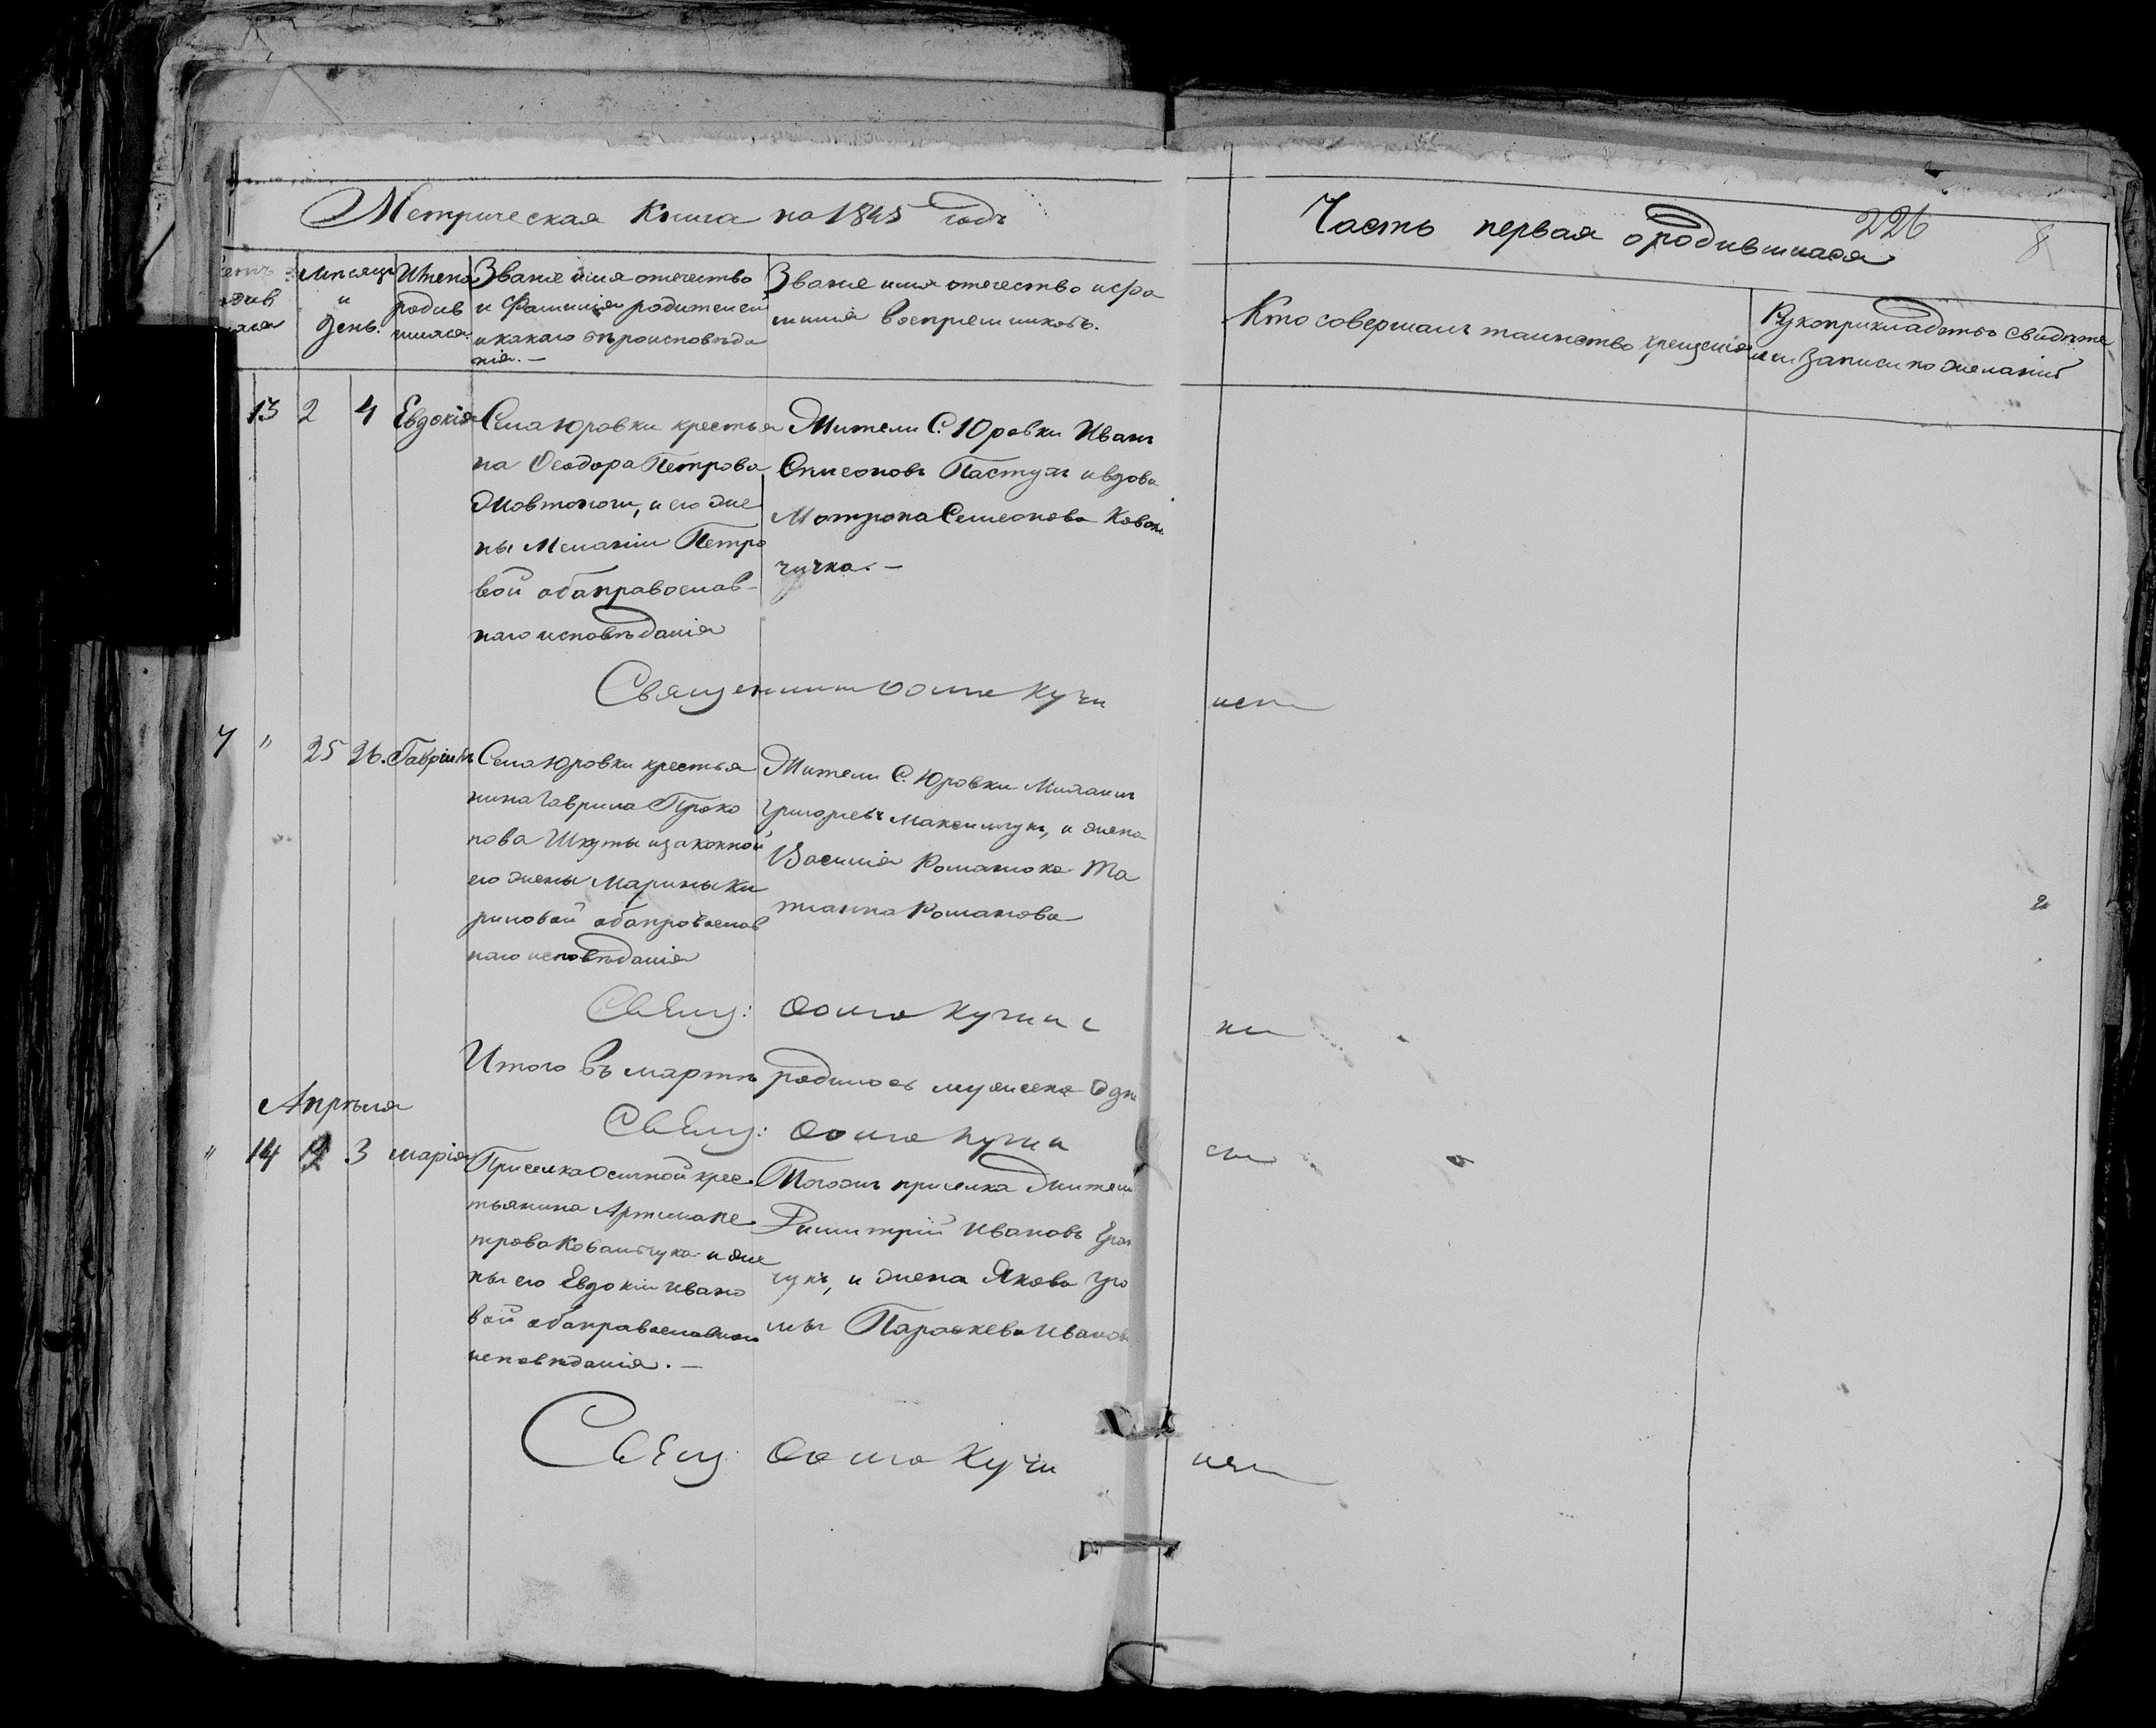 Метрическая Книга на 1845 годъ
Часть первая о родившихся
226
8
Мѣсяцъ и день.
Имена родившихся.
Званіе имя отечество
и Фамилія родителей
и какаго вѣроисповѣда
нія. —
Званіе имя отечество и фа
милія воспріемниковъ.
Кто совершалъ таинство крещенія
Рукоприкладство свидѣте
лей записи по желанію
13 2 4 Евдокія
Села Юровки крестья
на Ѳеодора Петрова
Жовтоноги, и его же
ны Меланіи Петро
вой оба православ-
наго исповѣданія
Жители С. Юровки Иванъ
Пастухъ и вдова
Мотрона Семеонова
чичка. —
Священник Ѳома Кучи
нск
7 " 25 26. Гавріилъ
Села Юровки крестья
нина Гаврила Проко
пова Шкуты и законной
его жены Марины Ки
риловой оба православ
наго исповѣданія
Жители С. Юровки Михаилъ
Григорьевъ Максимчукъ, и жена
Василія Романюка Та
тіанна Романова
Свящ: Ѳома Кучинс
ки
Итого въ мартѣ родилось мужеска
Свящ: Ѳома Кучин
ски
Апрѣля
" 14 2 3 Марія
Приселка Осичной крес
тьянина Артима Пе
трова Ковальчука и же
ны его Евдокіи Ивано
вой оба православнаго
исповѣданія. —
Тогожъ приселка жители
Димитрій Ивановъ
чукъ, и жена Якова
Параскева Иванов
Свящ Ѳома Кучи
нск